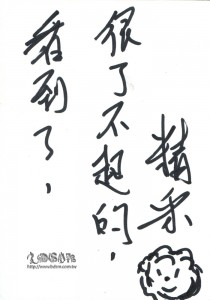 看到了，
很了不起的，
精采
http://www.hdcm.com.tw